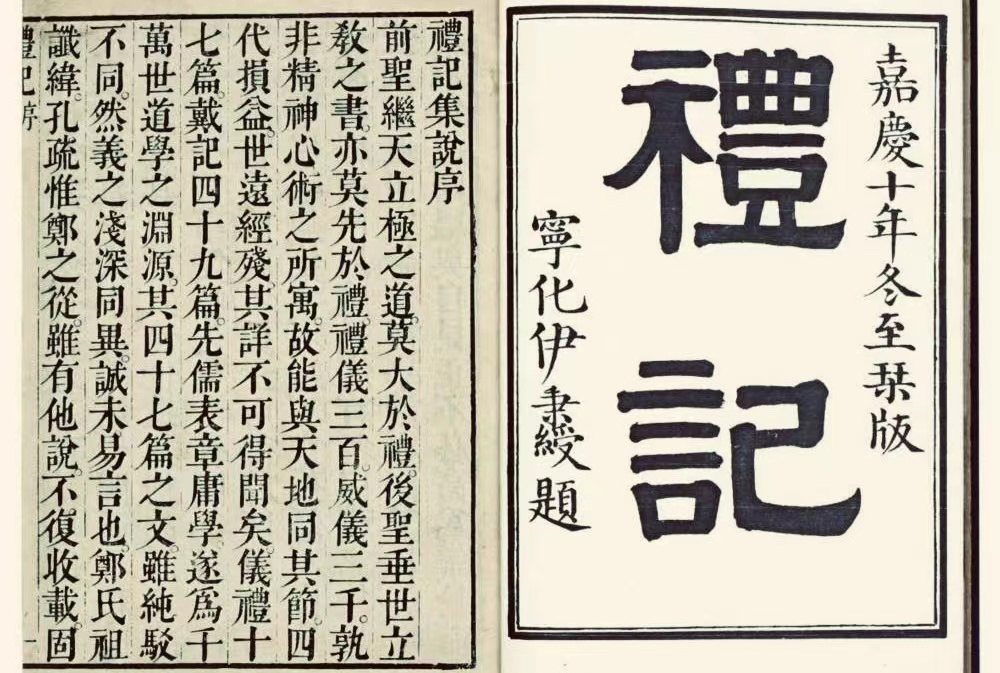 嘉慶十年冬至栞版
禮記
寧化伊秉綬題
禮記集說序
前聖繼天立極之道。莫大於禮。後聖垂世立
敎之書。亦莫先於禮。禮儀三百。威儀三千。孰
非精神心術之所寓。故能與天地同其節。四
代損益。世遠經殘。其詳不可得聞矣。儀禮十
七篇。戴記四十九篇。先儒表章庸學。遂爲千
萬世道學之淵源。其四十七篇之文。雖純駁
不同。然義之淺深同異。誠未易言也。鄭氏祖
讖緯。孔疏惟鄭之從。雖有他說。不復收載。固
禮記序 一